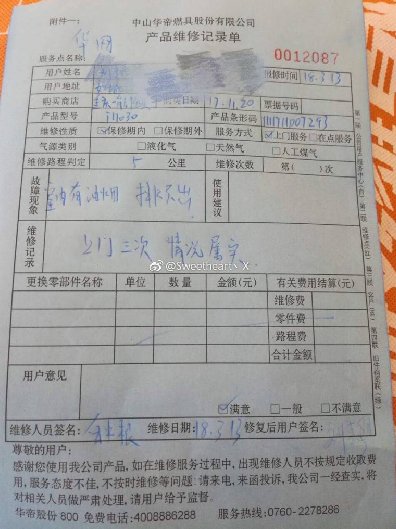 附件一:
中山华帝燃具股份有限公司
产品维修记录单
服务点名称: 华网
0012087
用户姓名 报修时间 18.3.13
用户地址
购买商店 出货日期 17.11.20 票据号码
产品型号 i11030 产品条形码 111711007293
维修性质 ☑保修期内 □保修期外 服务方式 ☑上门服务 □在点服务
气源类别 □液化气 □天然气 □人工煤气
维修路程判定 5 公里 维修次数 第( )次
故障现象 室内有油烟 排不出 使用建议
维修记录 上门三次 情况属实
@Sweetheart丶X
更换零部件名称 单位 数量 金额(元) 有关费用结算(元)
维修费
零件费
路程费
合计金额
用户意见
☑满意 □一般 □不满意
维修人员签名: 维修日期: 18.3.13 修复后用户签名:
尊敬的用户:
感谢您使用我公司产品,如在维修服务过程中,出现维修人员不按规定收取费
用,服务态度不佳,不按时维修等问题:请来电,来函投诉,我公司一经查实,将
对相关人员做严肃处理,请用户给予监督。
华帝股份800 免费电话:4008886288 服务热线:0760-22786286